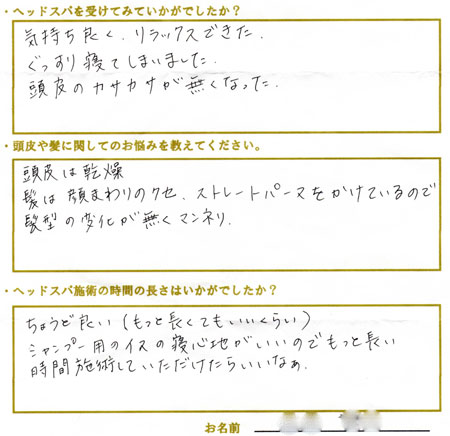 ・ヘッドスパを受けてみていかがでしたか？
気持ち良く、リラックスできた。
ぐっすり寝てしまいました。
頭皮のカサカサが無くなった。
・頭皮や髪に関してのお悩みを教えてください。
頭皮は乾燥
髪は顔まわりのクセ、ストレートパーマをかけているので
髪型の変化が無くマンネリ。
・ヘッドスパ施術の時間の長さはいかがでしたか？
ちょうど良い（もっと長くてもいいくらい）
シャンプー用のイスの寝心地がいいのでもっと長い
時間施術していただけたらいいなぁ。
お名前